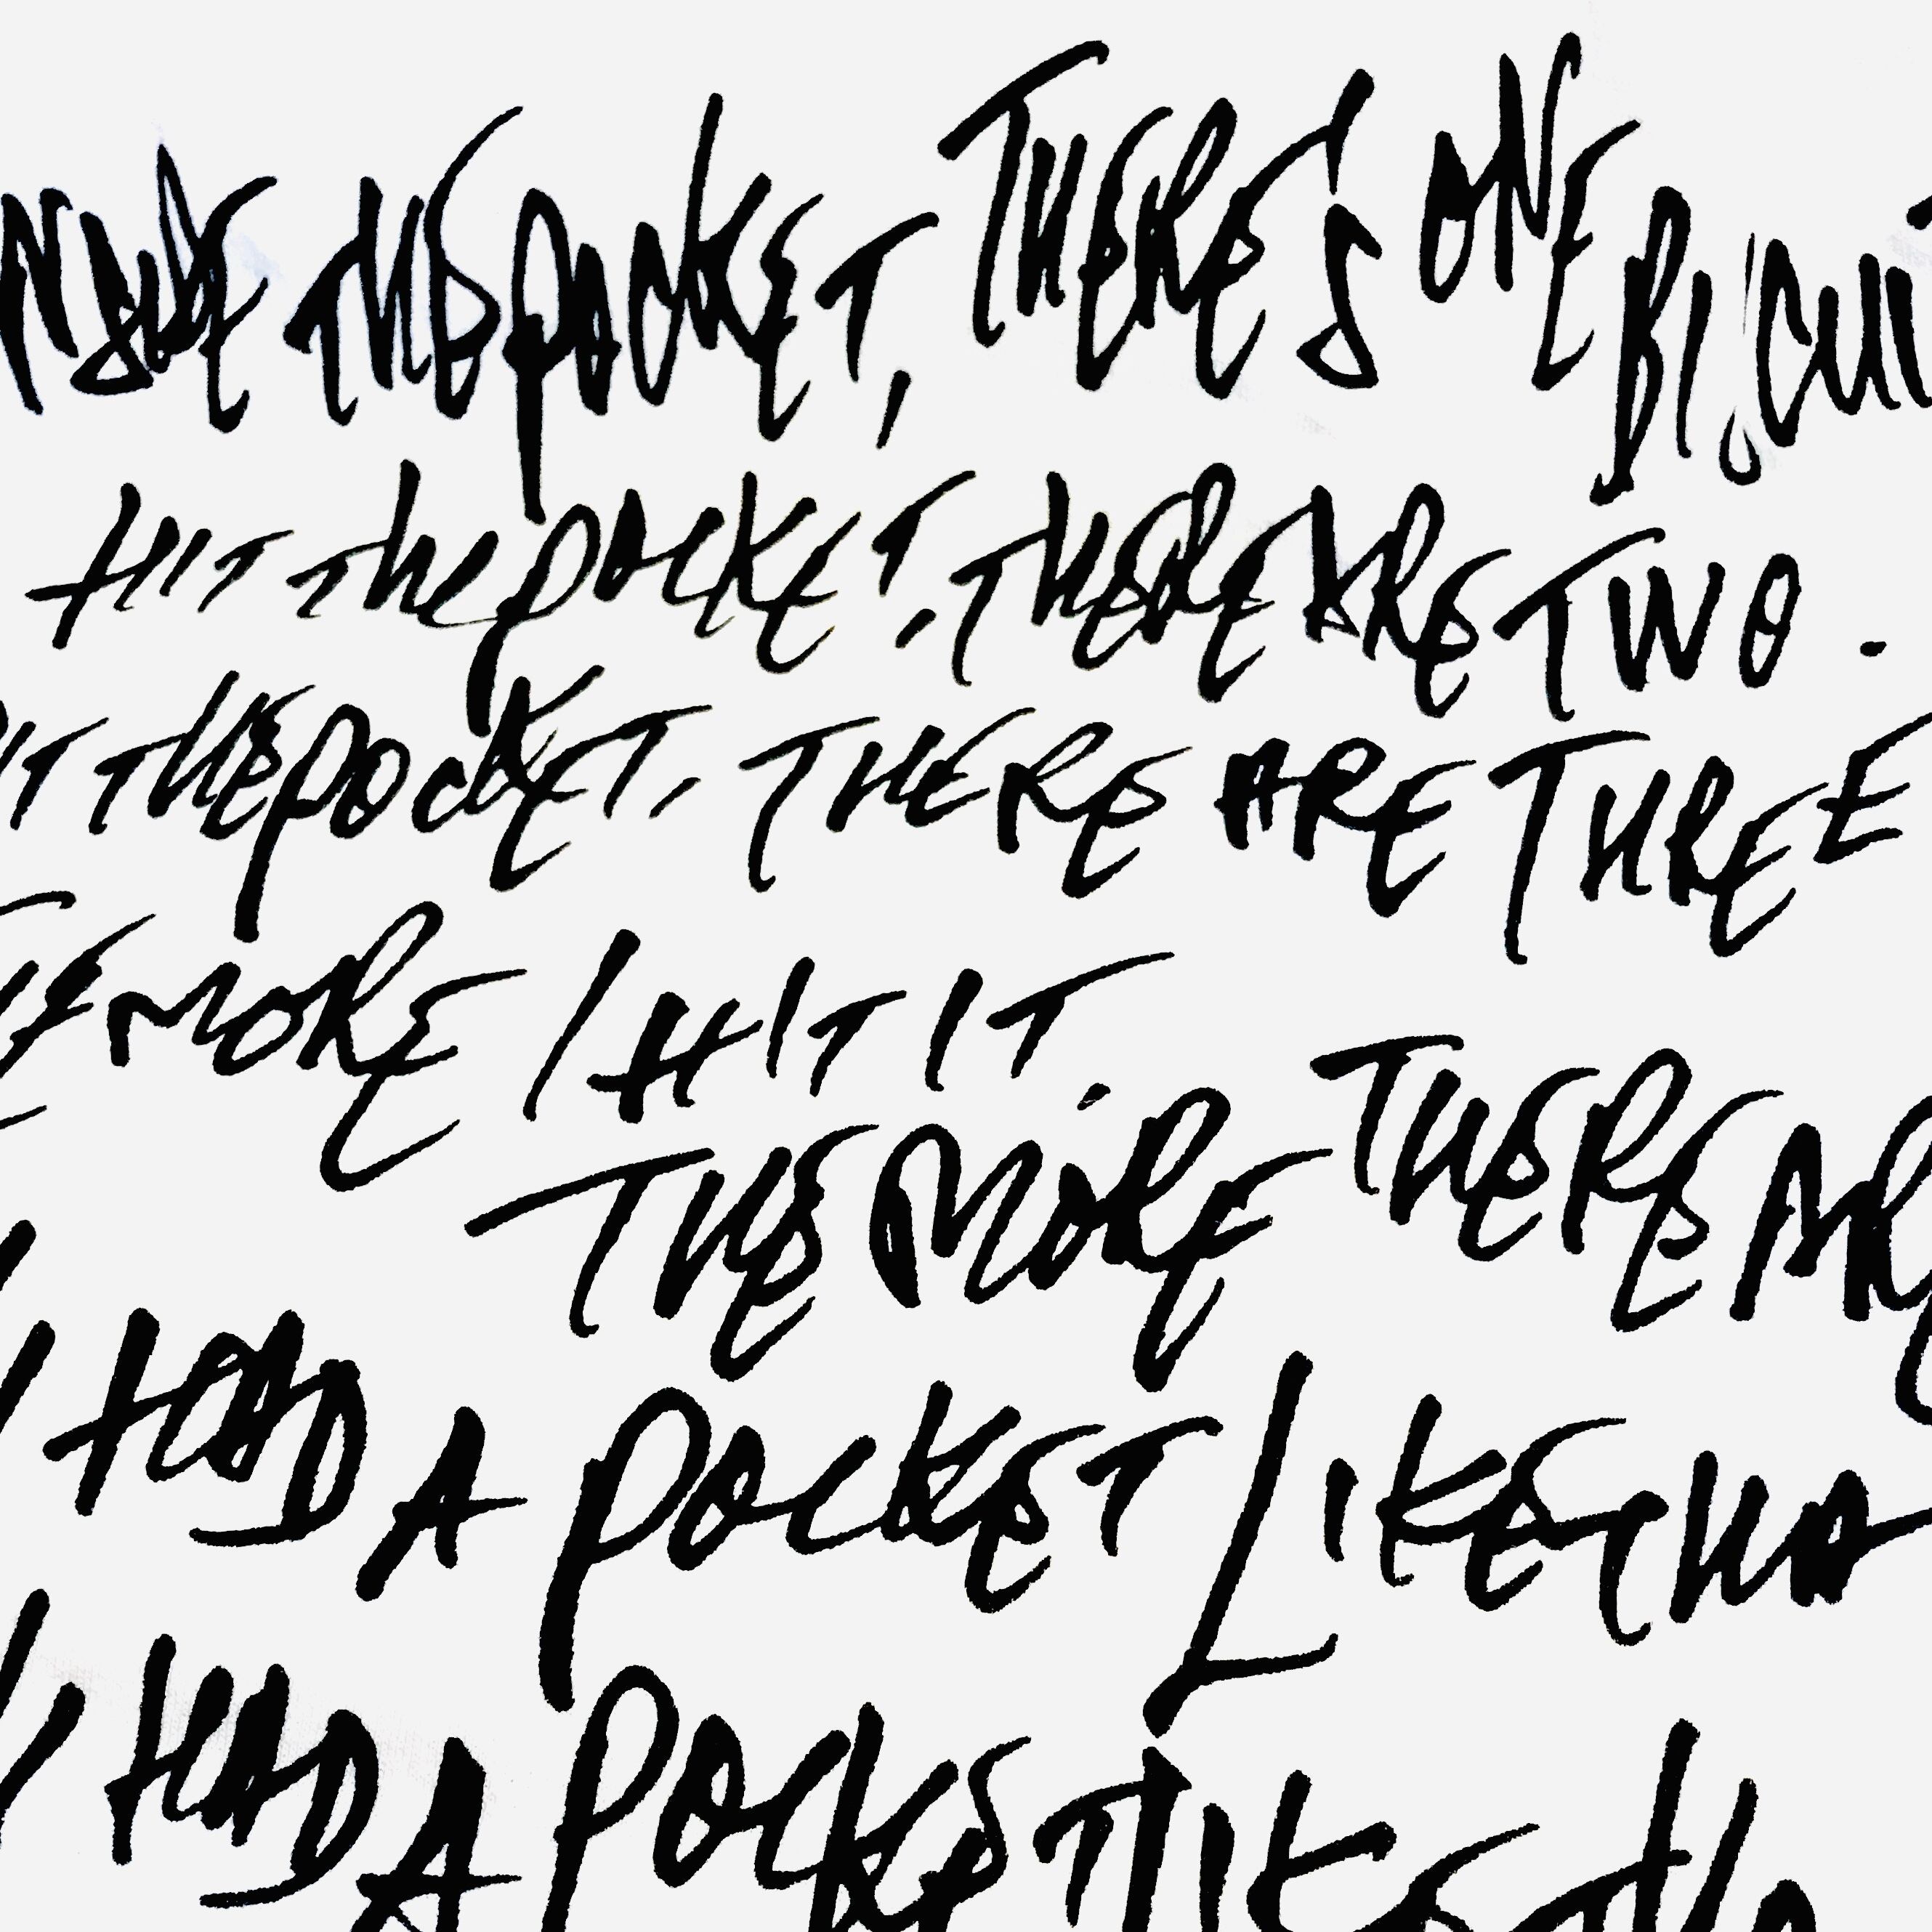 NSIDE THE POCKET, THERE'S ONE BISCUI
HIT THE POCKET, THERE ARE TWO.
IT THE POCKET, THERE ARE THREE
E MORE I HIT IT.
THE MORE THERE AR
I HAD A POCKET LIKE THA
I HAD A POCKET LIKE THA